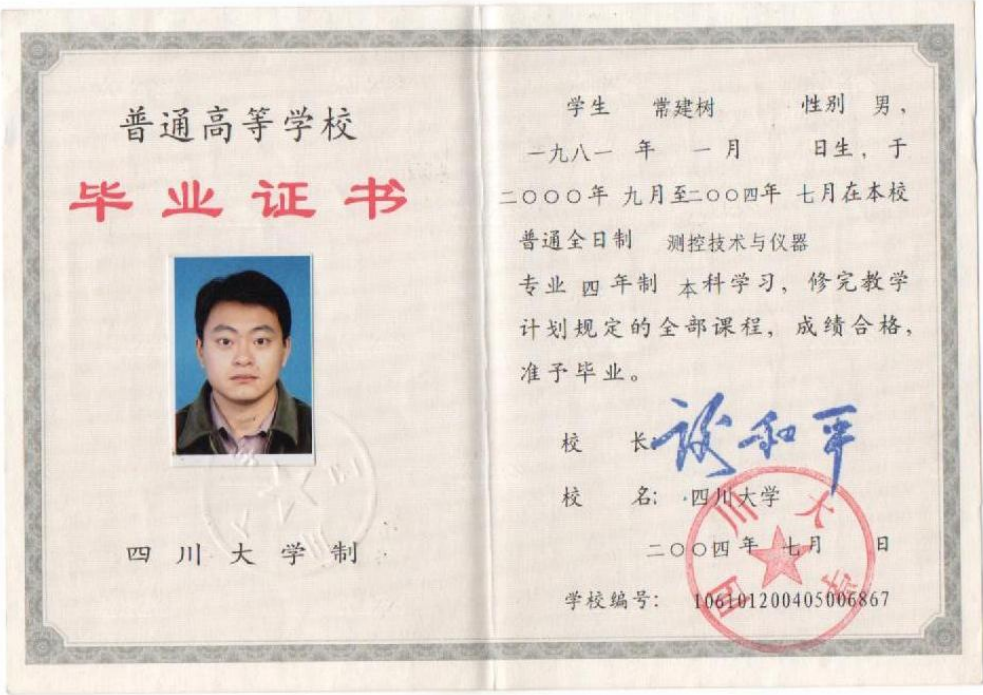 普通高等学校
毕业证书
四川大学制
学生 常建树 性别 男，
一九八一 年 一 月 日生，于
二〇〇〇年 九月至二〇〇四年 七月在本校
普通全日制 测控技术与仪器
专业 四 年制 本科学习，修完教学
计划规定的全部课程，成绩合格，
准予毕业。
校 长
校 名：四川大学
二〇〇四 年 七月 日
学校编号： 106101200405006867
四川大学